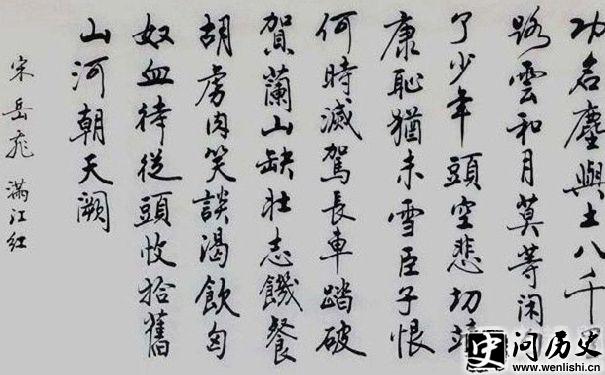 功名塵與土八千里
路雲和月莫等闲白
了少年頭空悲切靖
康恥猶未雪臣子恨
何時滅駕長車踏破
賀蘭山缺壯志饑餐
胡虜肉笑談渴飲匈
奴血待從頭收拾舊
山河朝天闕
宋岳飛 满江红
问历史
www.wenlishi.cn